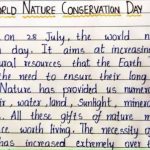 ORLD NATURE CONSERVATION DAY
on 28 July, the world
day. It aims at increasing
resources that the Earth
the need to ensure their long
Nature has provided us
water, land, sunlight,
All these gifts of nature
worth living. The necessity
has increased extremely over